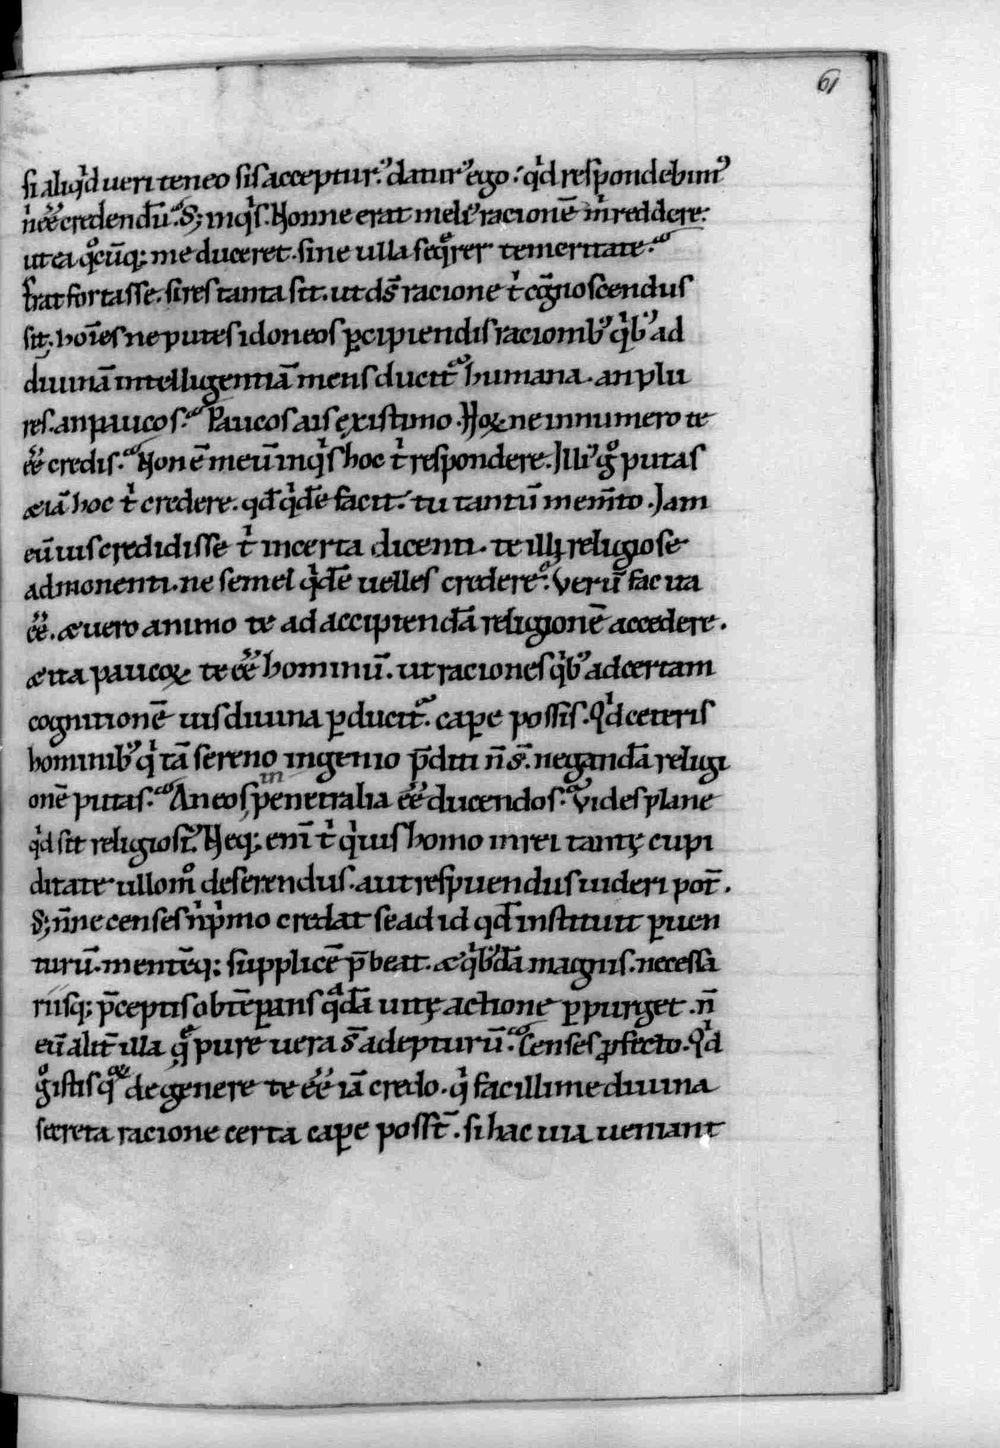 61
si aliq̇d ueri teneo sis acceptur᾿. daturꝰ ego.᾿ q̇d respondebimꝰ
ṅ eē̄ credendū. Sꝫ inq̇s. Nonne erat meliꝰ racionē ṁ reddere.
ut ea q̊cūq; me duceret. sine ulla seq̊rer temeritate.
Erat fortasse. si res tanta sit. ut ds̄ racione ṫ cḡnoscendus
sit. hoīes ne putes idoneos ꝑcipiendis racionibꝰ q̇bꝰ ad
diuinā intelligentiā mens ducit᷑ humana. an plu
res. an paucos. Paucos ais existimo. Hoꝝ ne in numero te
eē̄ credis. Non ē meū inq̇s hoc ṫ respondere. Illiꝰ g̊ putas
æ iā hoc ṫ credere. qd̄ q̇dē facit.᾿ tu tantū mem̄to. Iam
eū uis credidisse ṫ incerta dicenti. te illiꝫ religiose
admonenti. ne semel q̇dē uelles credere. Verū fac ita
eē̄. æ uero animo te ad accipiendā religionē accedere.
æ ita paucoꝝ te eē̄ hominū. ut raciones q̇bꝰ ad certam
cognitionē uis diuina ꝑducit᷑. capꝑe possis. Q̇d ceteris
hominibꝰ q̇ tā sereno ingenio p̄diti n̄ s̄. negandā religi
onē putas. An eos in penetralia eē̄ ducendos. Vides plane
q̇d sit religiosi᷑. Neq; eni᷑ ṫ q̇uis homo in rei tantę cupi
ditate ullo m̊ deserendus. aut respuendus uideri pot̄.
Sꝫ n̄ne censes ṅ p̓mo credat se ad id qd̄ instituit ꝑuen
turū. mentēq; supplicē p̄beat. æ q̇bꝰdā magnis. necessa
riisq; p̄ceptis obtēꝑans q̇dā uitę actione ꝑpurget. n̄
eū alit᷑ illa q̨ pure uera s̄ adepturū. Censes ꝓfecto. Q̇d
g̊ istis q̊ꝝ de genere te eē̄ iā credo. q̇ facillime diuina
secreta racione certa caꝑe poss̄t. si hac uia ueniant